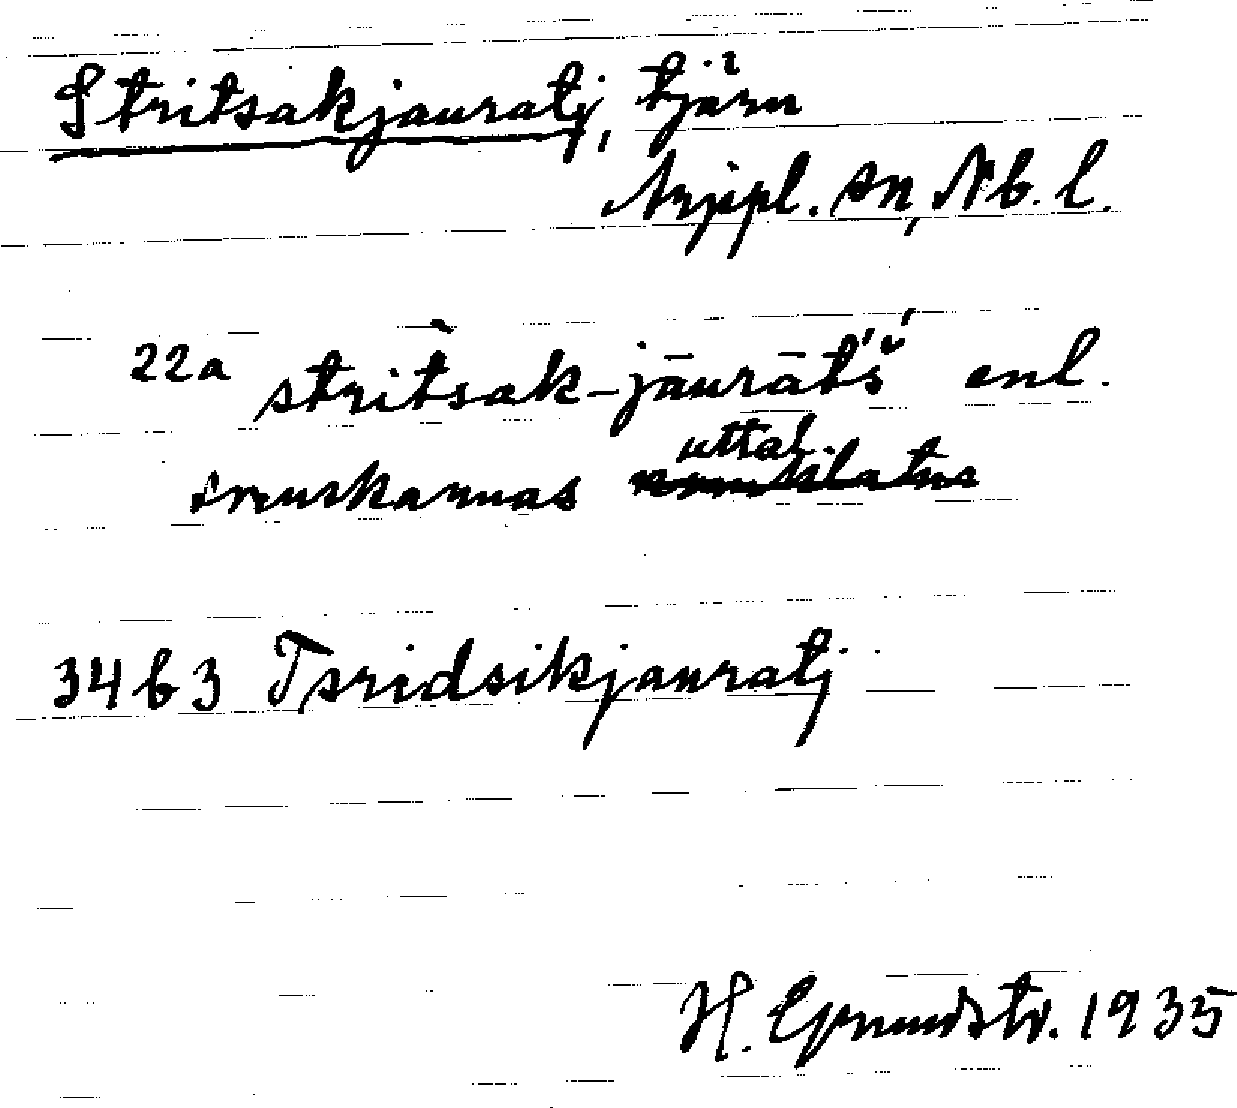 Stritsakjauratj, tjärn
Arjepl. sn, Nb. l.
22a stri̊tsak-jāurāt́š́ enl.
svenskarnas uttal
34 b 3 Tsridsikjauratj
H. Grundstr. 1935